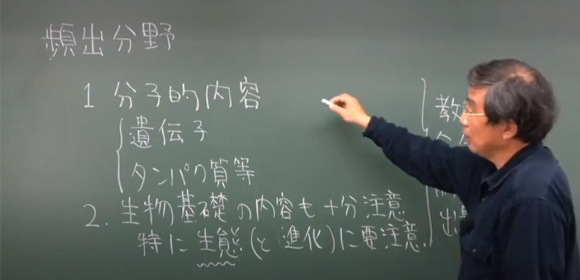 頻出分野
1 分子的内容
遺伝子
タンパク質等
2. 生物基礎の内容も十分注意
特に生態(と進化)に要注意.
教
出